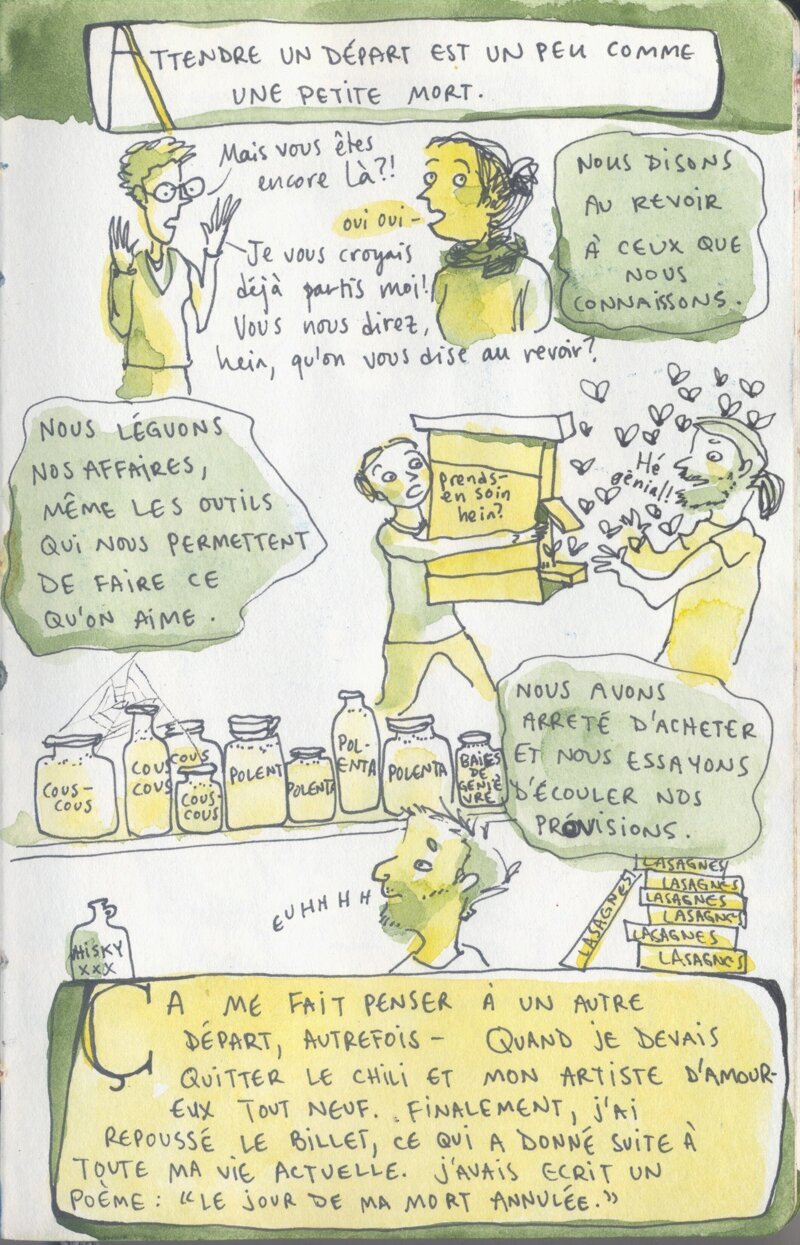 ATTENDRE UN DÉPART EST UN PEU COMME
UNE PETITE MORT.
Mais vous êtes
encore là?!
oui oui -
Je vous croyais
déjà partis moi!
Vous nous direz,
hein, qu'on vous dise au revoir?
NOUS DISONS
AU REVOIR
À CEUX QUE
NOUS
CONNAISSONS.
NOUS LÉGUONS
NOS AFFAIRES,
MÊME LES OUTILS
QUI NOUS PERMETTENT
DE FAIRE CE
QU'ON AIME.
Prends-
en soin
hein?
Hé
génial!
NOUS AVONS
ARRETÉ D'ACHETER
ET NOUS ESSAYONS
D'ÉCOULER NOS
PROVISIONS.
COUS-
COUS
COUS
COUS
COUS
COUS-
COUS
POLENT
POLENTA
POL-
ENTA
POLENTA
BAIES
DE
GENIÈ
VRE
EUHHHH
WISKY
XXX
LASAGNES
LASAGNES
LASAGNES
LASAGNES
LASAGNES
LASAGNES
LASAGNES
ÇA ME FAIT PENSER À UN AUTRE
DÉPART, AUTREFOIS - QUAND JE DEVAIS
QUITTER LE CHILI ET MON ARTISTE D'AMOUR-
EUX TOUT NEUF. FINALEMENT, J'AI
REPOUSSÉ LE BILLET, CE QUI A DONNÉ SUITE À
TOUTE MA VIE ACTUELLE. J'AVAIS ECRIT UN
POÈME : "LE JOUR DE MA MORT ANNULÉE."